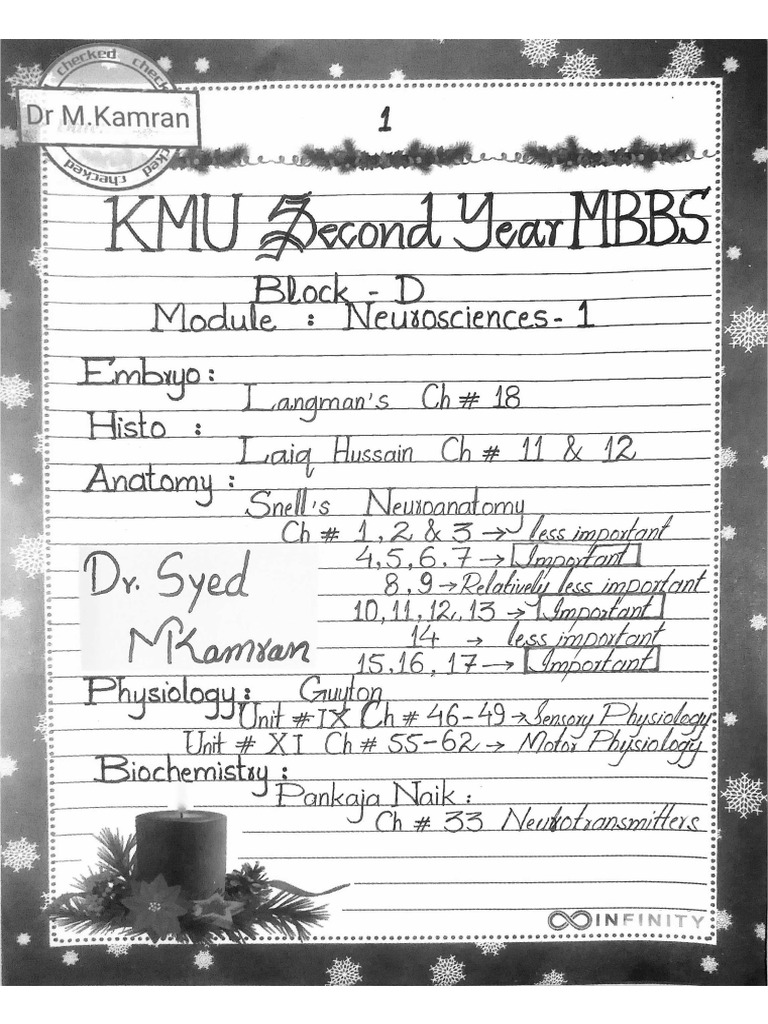 checked checked
Dr M.Kamran
checked
1
KMU Second Year MBBS
Block - D
Module : Neurosciences - 1
Embryo :
Langman's Ch # 18
Histo :
Laiq Hussain Ch # 11 & 12
Anatomy :
Snell's Neuroanatomy
Ch # 1, 2 & 3 → less important
4, 5, 6, 7 → Important
8, 9 → Relatively less important
10, 11, 12, 13 → Important
14 → less important
15, 16, 17 → Important
Dr. Syed
MKamran
Physiology : Guyton
Unit # IX Ch # 46-49 → Sensory Physiology
Unit # XI Ch # 55-62 → Motor Physiology
Biochemistry :
Pankaja Naik :
Ch # 33 Neurotransmitters
INFINITY